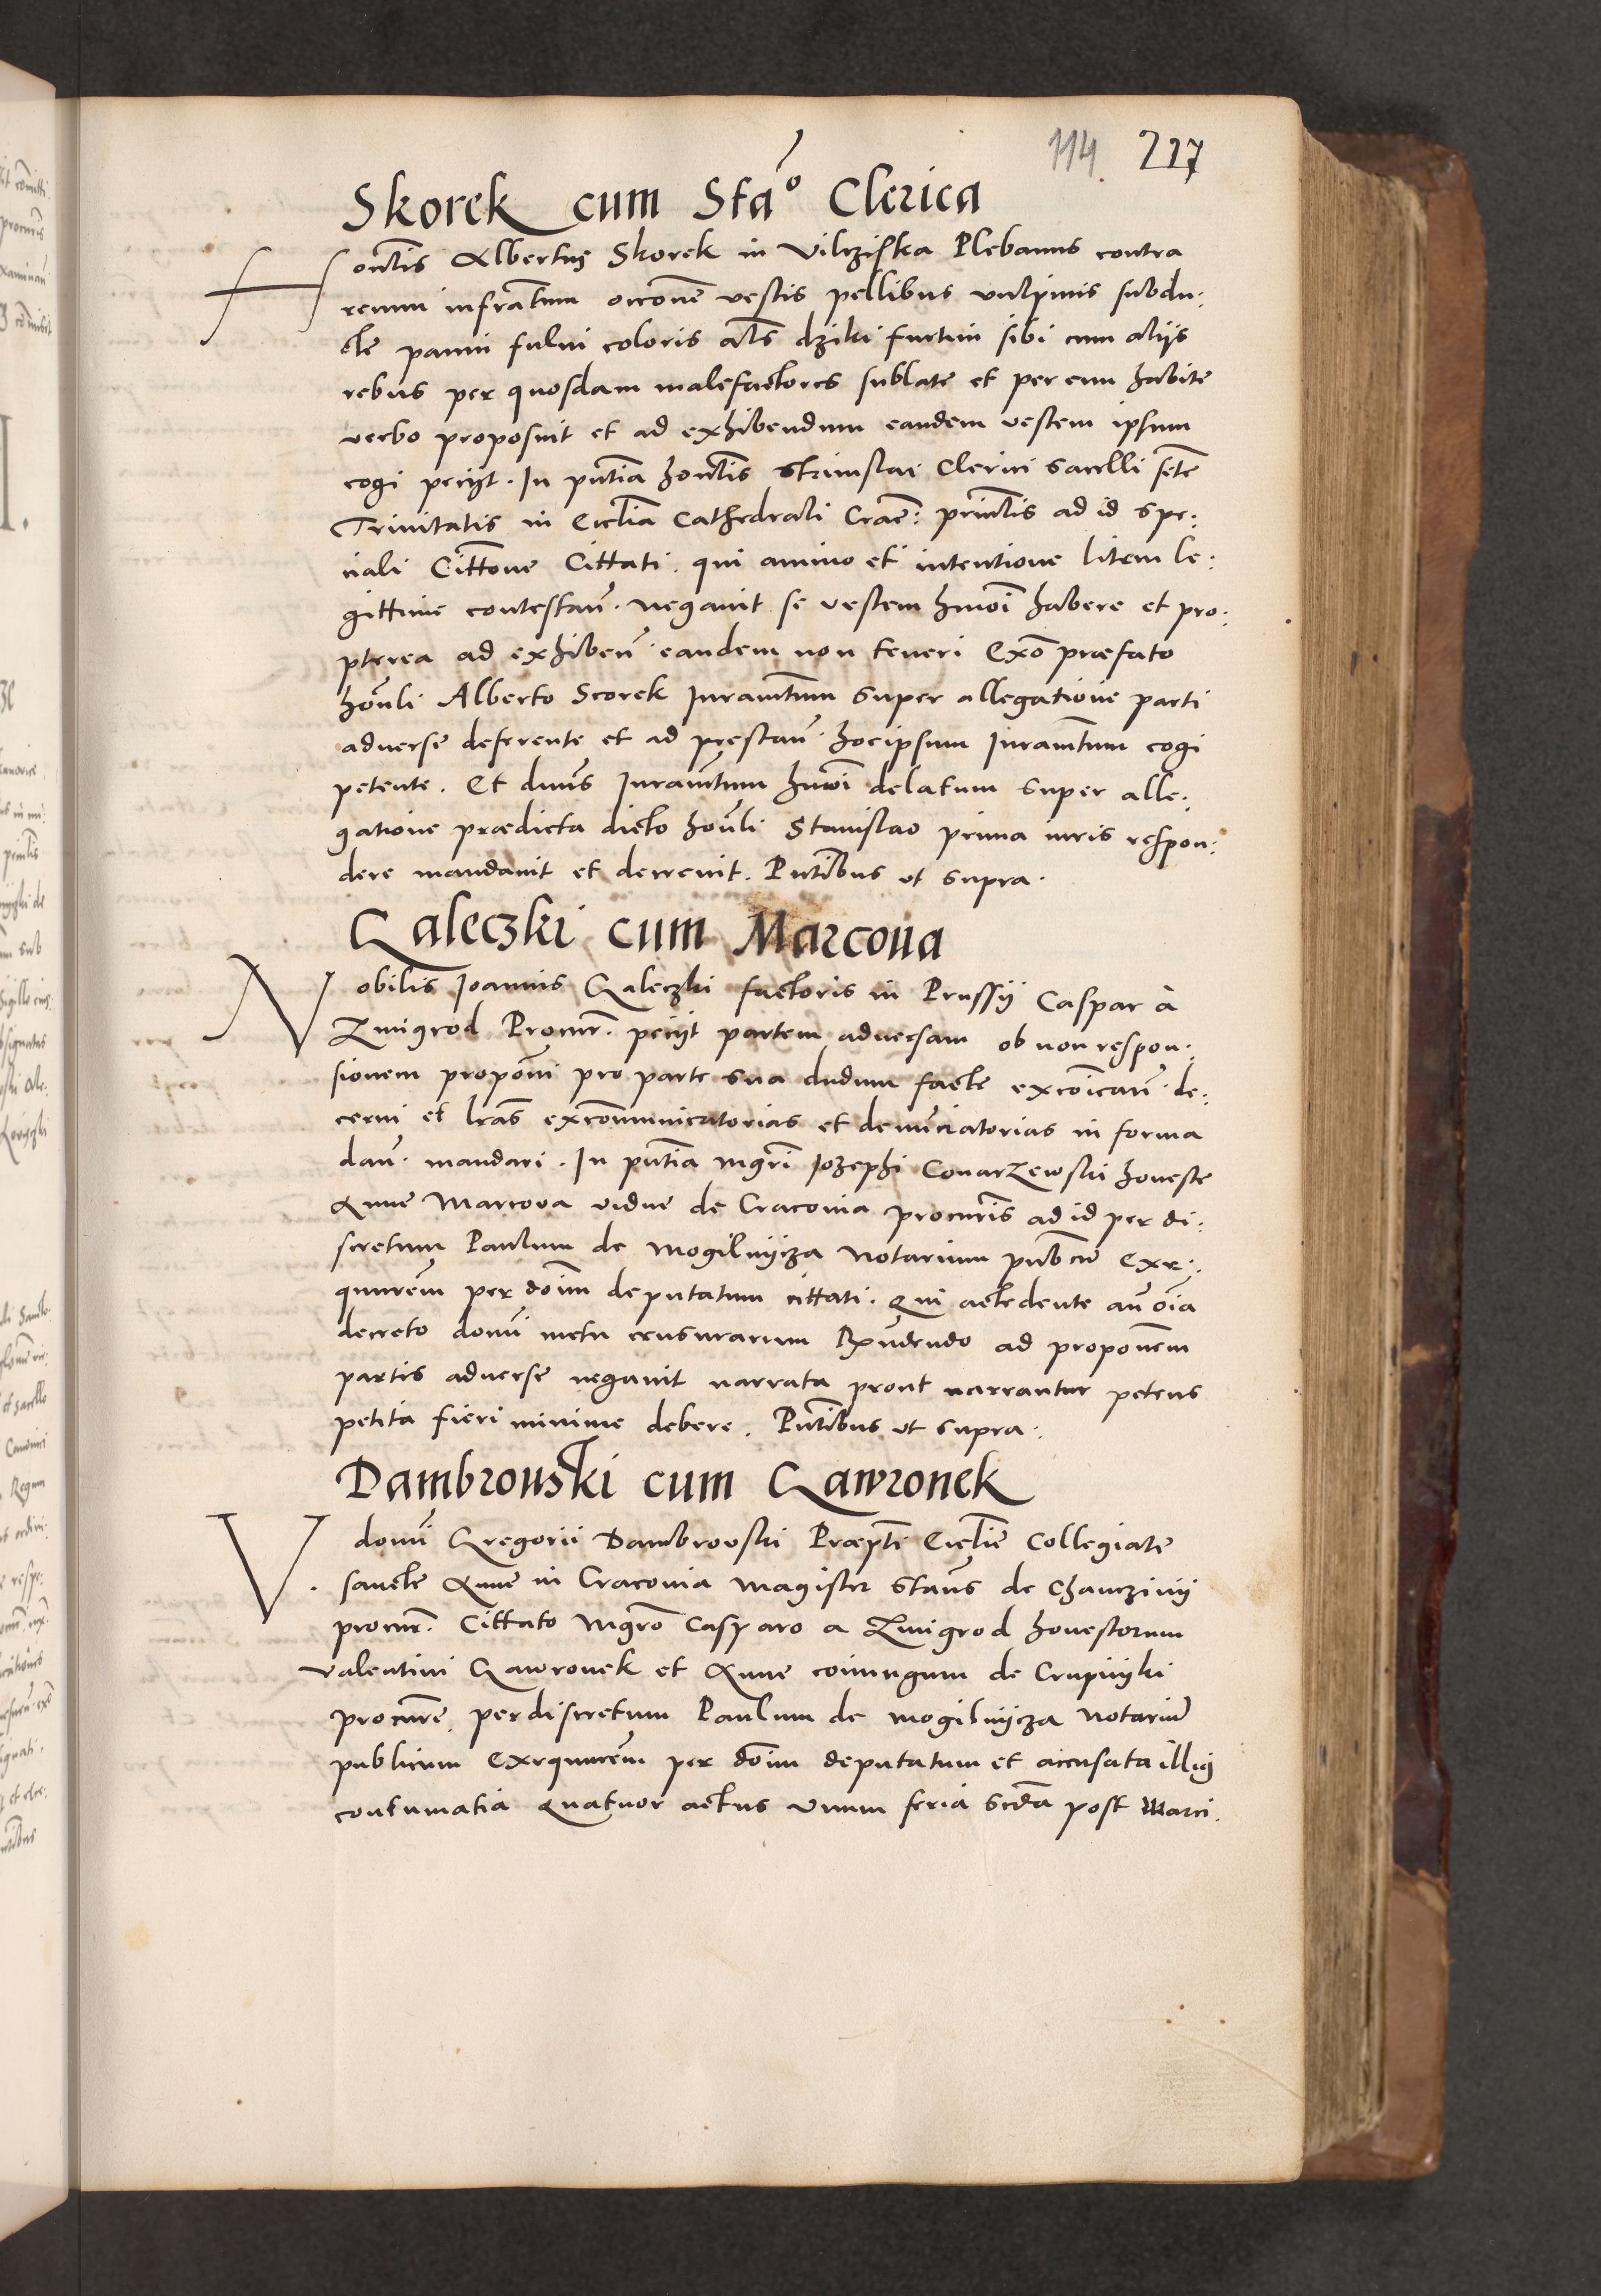 114 227
Skorek cum Sta͂o Clerica
Hon͂lis Albertus Skorek in Vilcziska Plebanus contra
reum infra͂tum occone͂ vestis pellibus vulpinis subdu:
cte panni fului coloris al͂s dziki furtim sibi cum alijs
rebus per quosdam malefactores sublate et per eum habite
verbo proposuit et ad exhibendum eandem vestem ipsum
cogi pecijt. In pn͂tia hon͂lis Stanislai Clerici sacelli s͂cte
Trinitatis in Eccl͂ia Cathedrali Crac͂: prin͂lis ad id spe:
ciali Citto͂ne Cittati. qui animo et intentione litem le:
gittime contestan͂. negauit se vestem hm͂oi habere et pro:
pterea ad exhiben͂. eandem non teneri Ex͂o præfato
hon͂li Alberto Scorek Iuram͂tum super allegatione parti
aduerse deferente et ad prestan͂. hoc ipsum Iuram͂tum cogi
petente. Et dn͂us Iuram͂tum hm͂oi delatum super alle:
gatione prædicta dicto hon͂li Stanislao prima iuris respon:
dere mandauit et decreuit. Pn͂tibus vt supra.
Galeczki cum Marcoua
Nobilis Joannis Galeczki factoris in Prussij Caspar à
Zmigrod Procur͂. pecijt partem aduersam ob non respon:
sionem propo͂ni pro parte sua dudum facte exco͂ican͂. de:
cerni et l͂ras exco͂mmunicatorias et denun͂ciatorias in forma
dan͂. mandari. In pn͂tia mgr͂i Iozephi Conarzewski honeste
Anne Marcova vidue de Cracovia procur͂is ad id per di:
scretum Paulum de Mogilnijcza Notarium pub͂cu͂ Exe:
quure͂m per do͂im deputatum cittati. Qui actedente an͂ o͂ia
decreto don͂i metu censurarum Rn͂dendo ad proponem͂
partis aduerse negauit narrata prout narrantur petens
petita fieri minime debere. Pn͂tibus vt supra.
Dambrowski cum Gawronek
V. don͂i Gregorii Dambrovski Præp͂ti Eccl͂ie Collegiate
sancte Anne in Cracovia Magister Stan͂s de Chanczinij
procur͂. Cittato Mgr͂o Casparo a Zmigrod honestorum
Valentini Gawronek et Anne coniugum de Crupnijki
procure͂. per discretum Paulum de Mogilnijcza Notariu͂
publicum Exequure͂m per do͂im deputatum et accusata illig
contumatia Quatuor actus vnum feria sc͂da post Marci.